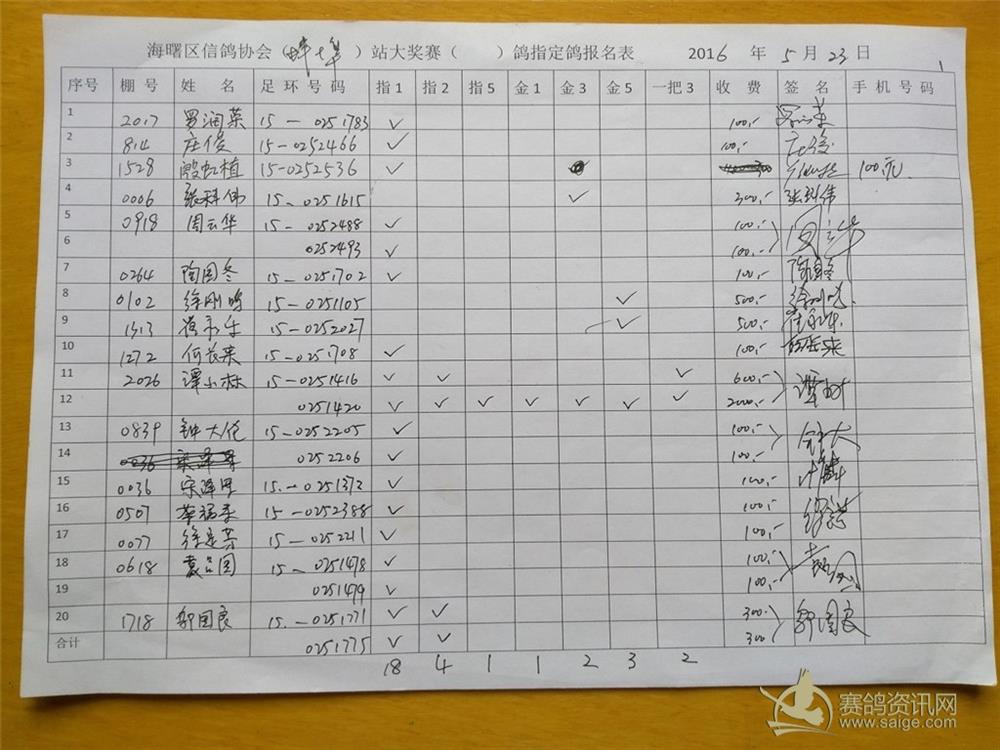 海曙区信鸽协会（蚌埠）站大奖赛（ ）鸽指定鸽报名表 2016 年 5 月 23 日 1
序号 棚号 姓名 足环号码 指1 指2 指5 金1 金3 金5 一把3 收费 签名 手机号码
1 2017 罗润菜 15-0251783 ✓ 100,-
2 814 庄俊 15-0252466 ✓ 100,- 庄俊
3 1528 殷虹植 15-0252536 ✓ 100元
4 0006 张科伟 15-0251615 ✓ 300,- 张科伟
5 0918 周云华 15-0252488 ✓ 100,-
6 0252493 ✓ 100,-
7 0264 陶国冬 15-0251702 ✓ 100,- 陶国冬
8 0102 徐刚鸣 15-0251105 ✓ 500,-
9 1313 15-0252027 ✓ 500,-
10 1272 何长来 15-0251708 ✓ 100,- 何长来
11 2026 谭小林 15-0251416 ✓ ✓ ✓ 600,-
12 0251420 ✓ ✓ ✓ ✓ ✓ ✓ ✓ 2000,-
13 0839 钟大伦 15-0252205 ✓ 100,-
14 0036 0252206 ✓ 100,-
15 0036 15-0251372 ✓ 100,-
16 0507 15-0252388 ✓ 100,-
17 0077 15-0252211 ✓ 100,-
18 0618 袁品国 15-0251478 ✓ 100,-
19 0251479 ✓ 100,-
20 1718 郭国良 15-0251771 ✓ ✓ 300,- 郭国良
合计 0251775 ✓ ✓ 300
18 4 1 1 2 3 2
赛鸽资讯网
www.saige.com